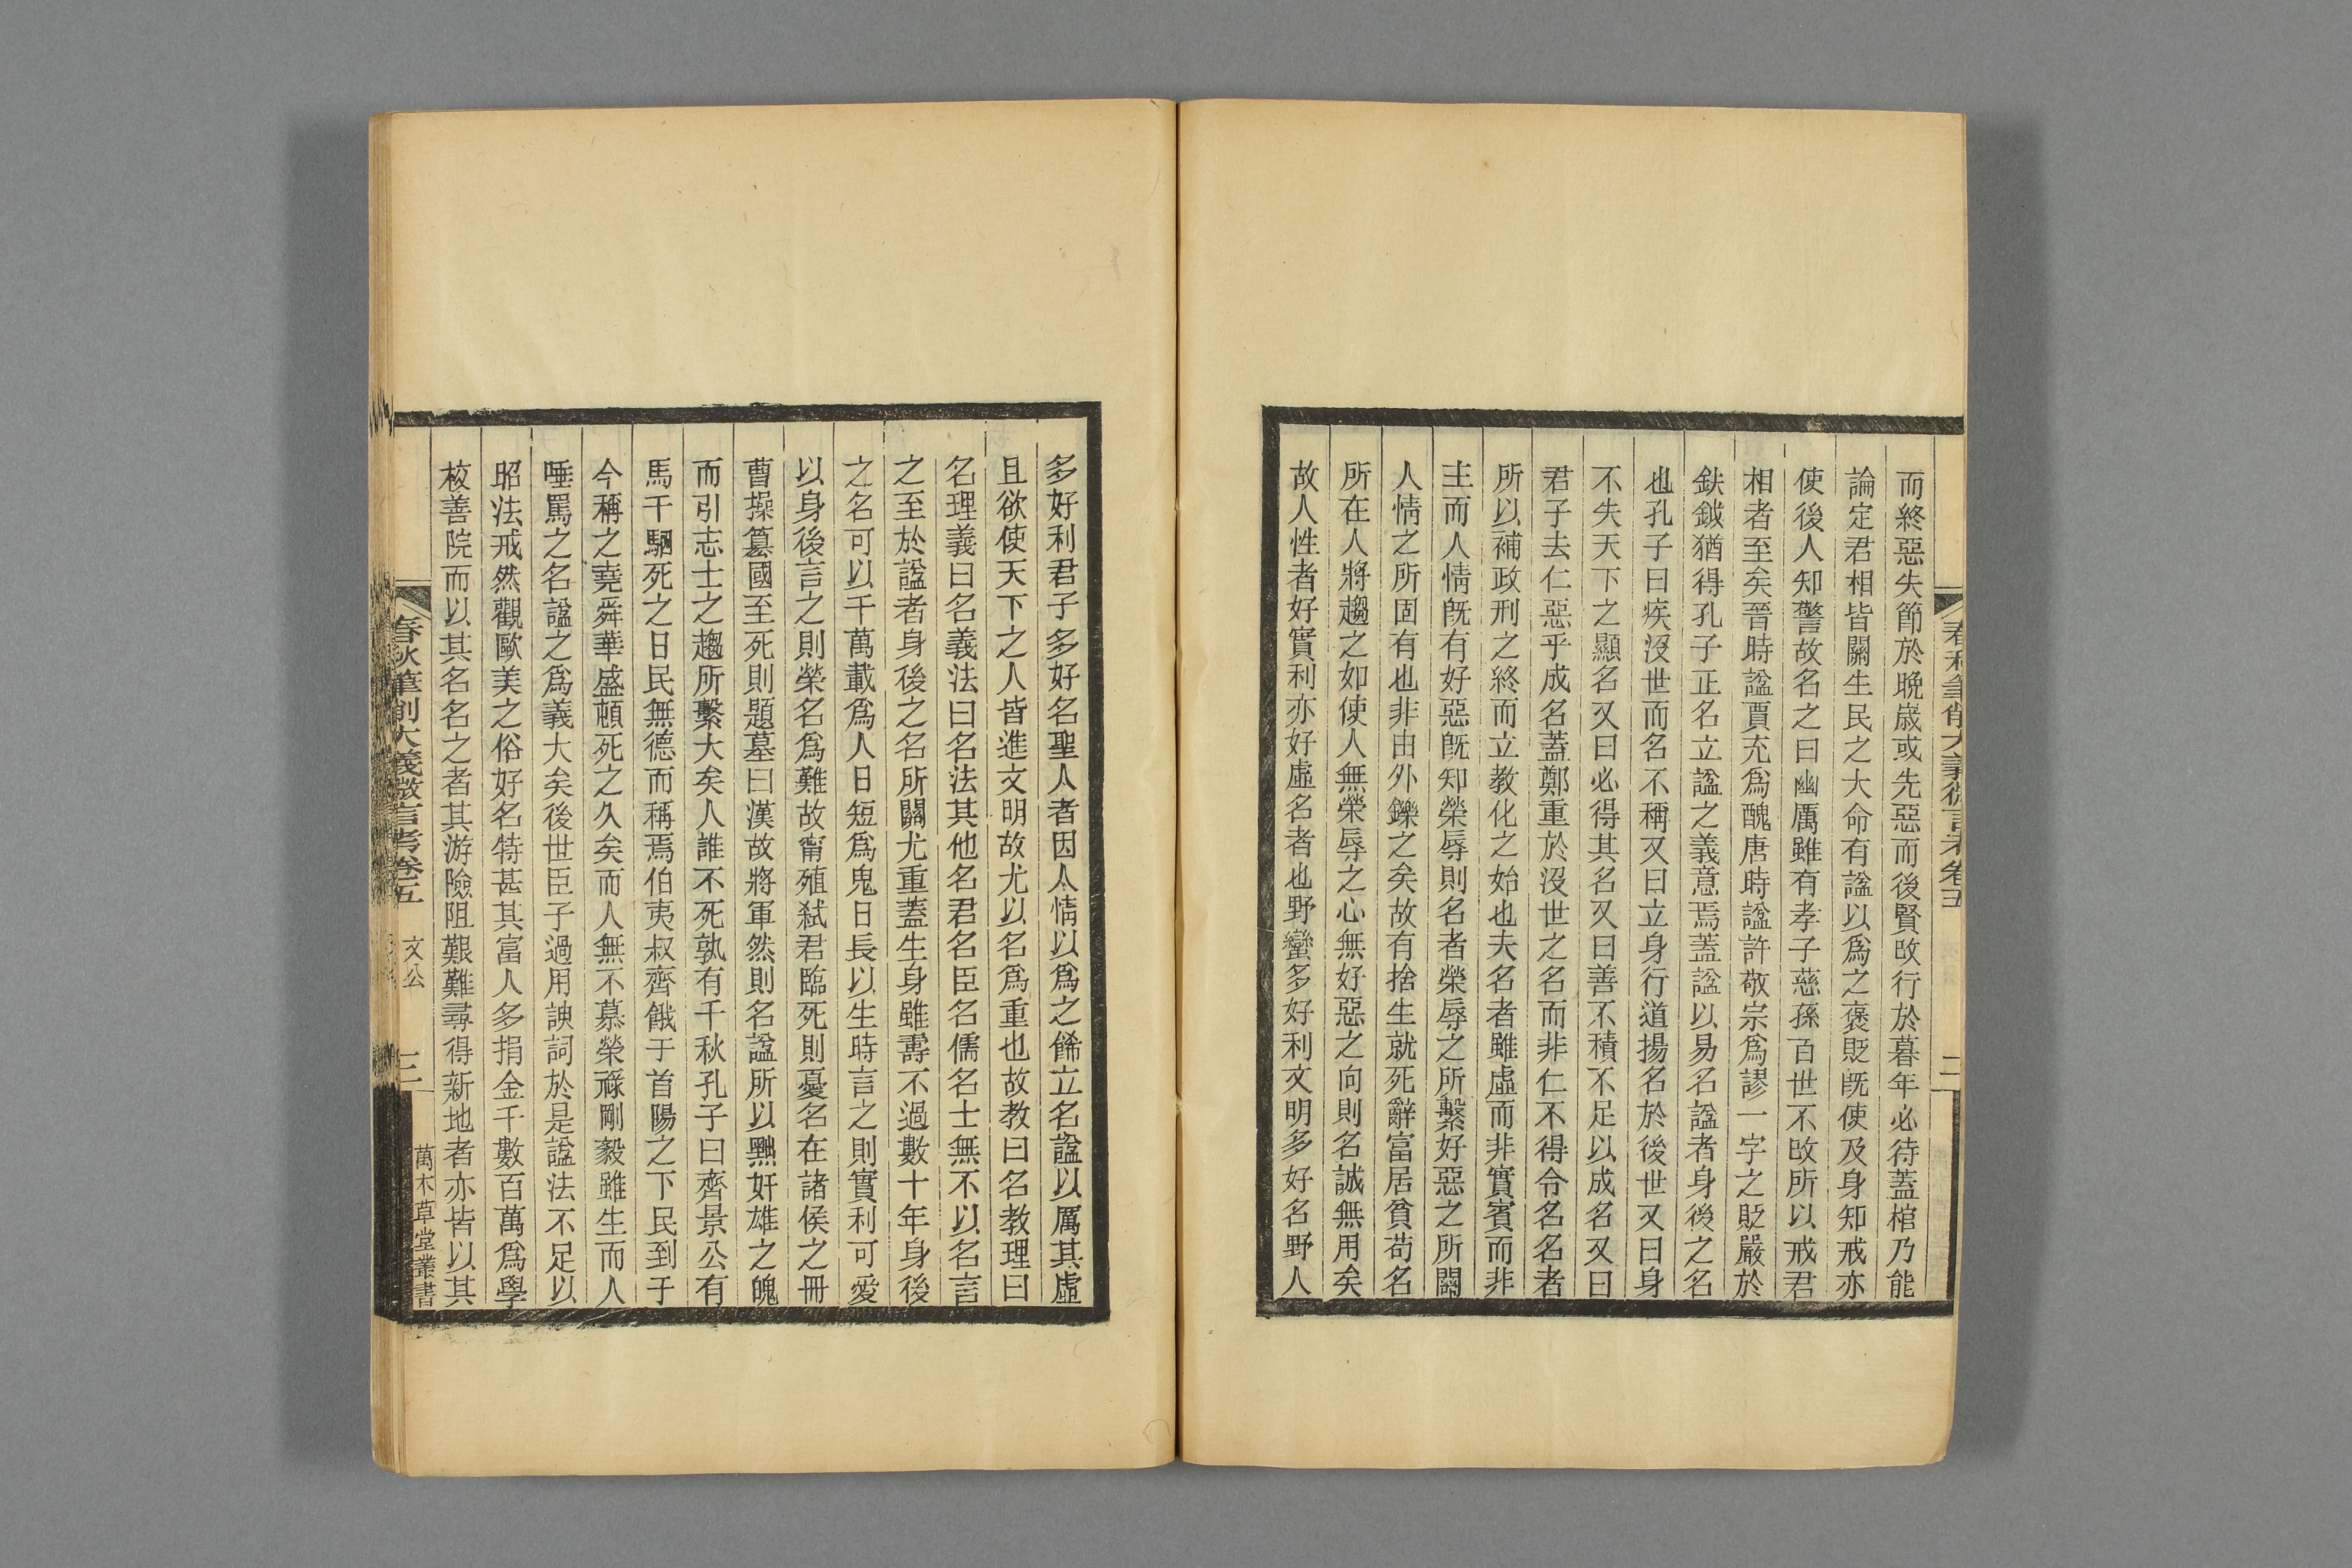 春秋筆削大義微言考卷五
二
而終惡失節於晚歲或先惡而後賢改行於暮年必待蓋棺乃能
論定君相皆關生民之大命有諡以爲之褒貶旣使及身知戒亦
使後人知警故名之曰幽厲雖有孝子慈孫百世不改所以戒君
相者至矣晉時諡賈充爲醜唐時諡許敬宗爲謬一字之貶嚴於
鈇鉞猶得孔子正名立諡之義意焉蓋諡以易名諡者身後之名
也孔子曰疾沒世而名不稱又曰立身行道揚名於後世又曰身
不失天下之顯名又曰必得其名又曰善不積不足以成名又曰
君子去仁惡乎成名蓋鄭重於沒世之名而非仁不得令名名者
所以補政刑之終而立教化之始也夫名者雖虛而非實賓而非
主而人情旣有好惡旣知榮辱則名者榮辱之所繫好惡之所關
人情之所固有也非由外鑠之矣故有捨生就死辭富居貧苟名
所在人將趨之如使人無榮辱之心無好惡之向則名誠無用矣
故人性者好實利亦好虛名者也野蠻多好利文明多好名野人
多好利君子多好名聖人者因人情以爲之餙立名諡以厲其虛
且欲使天下之人皆進文明故尤以名爲重也故教曰名教理曰
名理義曰名義法曰名法其他名君名臣名儒名士無不以名言
之至於諡者身後之名所關尤重蓋生身雖壽不過數十年身後
之名可以千萬載爲人日短爲鬼日長以生時言之則實利可愛
以身後言之則榮名爲難故甯殖弒君臨死則憂名在諸侯之冊
曹操簒國至死則題墓曰漢故將軍然則名諡所以黜奸雄之魄
而引志士之趨所繫大矣人誰不死孰有千秋孔子曰齊景公有
馬千駟死之日民無德而稱焉伯夷叔齊餓于首陽之下民到于
今稱之堯舜華盛頓死之久矣而人無不慕榮祿剛毅雖生而人
唾罵之名諡之爲義大矣後世臣子過用諛詞於是諡法不足以
昭法戒然觀歐美之俗好名特甚其富人多捐金千數百萬爲學
校善院而以其名名之者其游險阻艱難尋得新地者亦皆以其
春秋筆削大義微言考卷五
文公
三
萬木草堂叢書